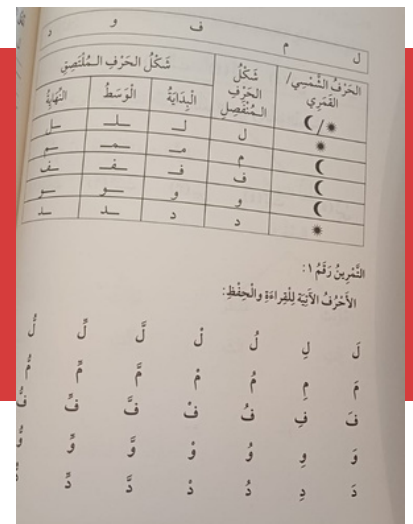 ل م ف و د
الحَرْفُ الشَّمْسِي/القَمَرِي شَكْلُ الحَرْفِ الـمُنْفَصِلِ شَكْلُ الحَرْفِ الـمُلْتَصِقِ
الْبِدَايَةُ الْوَسَطُ النِّهَايَةُ
ل لـ ـلـ ـل
م مـ ـمـ ـم
ف فـ ـفـ ـف
و و ـو ـو
د د ـد ـد
التَّمْرِينُ رَقَمُ ١:
الأَحْرُفُ الآتِيَة لِلْقِرَاءَةِ والْحِفْظِ:
لَ لِ لُ لْ لَّ لِّ لُّ
مَ مِ مُ مْ مَّ مِّ مُّ
فَ فِ فُ فْ فَّ فِّ فُّ
وَ وِ وُ وْ وَّ وِّ وُّ
دَ دِ دُ دْ دَّ دِّ دُّ